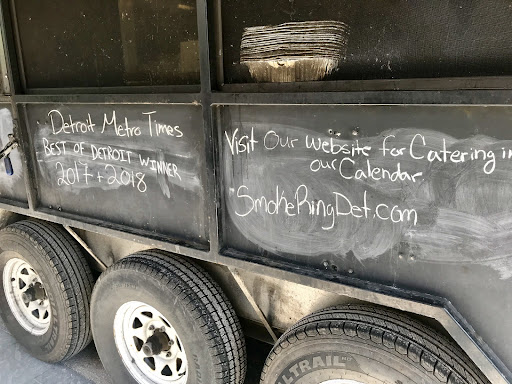 Detroit Metro Times
BEST OF DETROIT WINNER
2017 + 2018
Visit Our Website for Catering in
our Calendar
SmokeRingDet.com
TRAIL